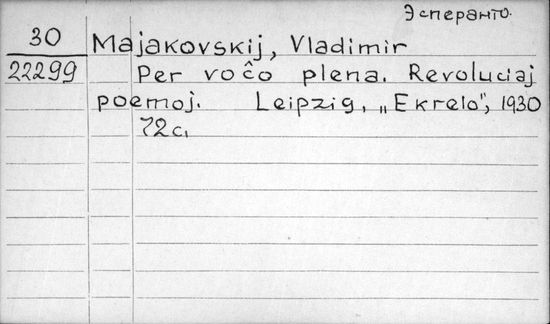 Эсперанто.
30
Majakovskij, Vladimir
22299
Per voĉo plena. Revoluciaj
poemoj. Leipzig, „Ekrelo", 1930
72с.